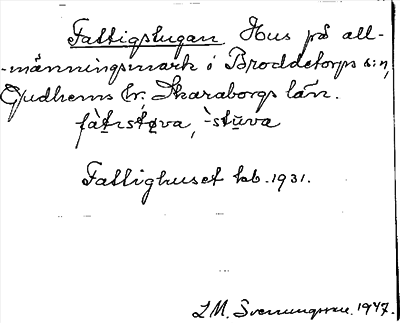 Fattigstugan Hus på all-
-männingsmark i Broddetorps s:n,
Gudhems hr, Skaraborgs län.
fàtɩstøva, `-stuva
Fattighuset kb. 1931.
L M. Svenungsson. 1947.